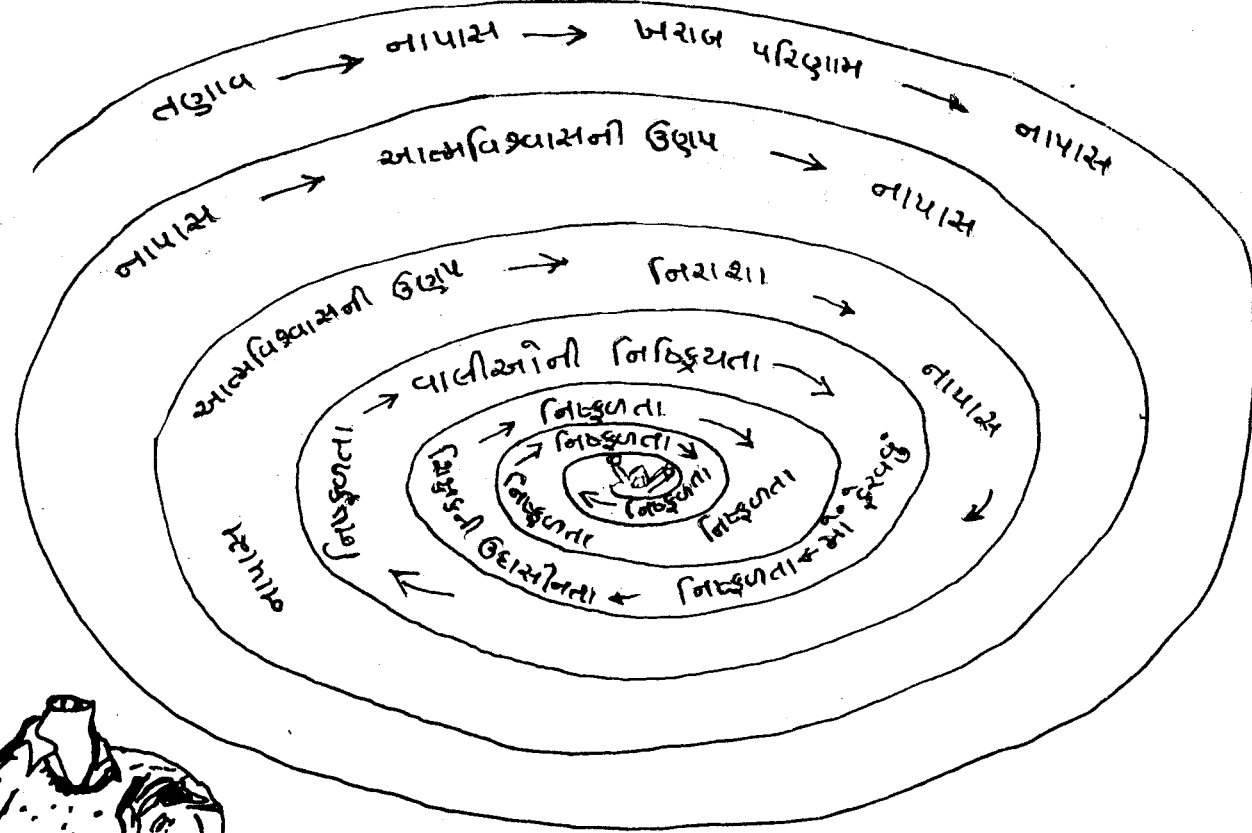 તણાવ → નાપાસ → ખરાબ પરિણામ → નાપાસ
નાપાસ → આત્મવિશ્વાસની ઉણપ → નાપાસ
આત્મવિશ્વાસની ઉણપ → નિરાશા → નાપાસ
નાપાસ
નિષ્ફળતા → વાલીઓની નિષ્ક્રિયતા →
મોં ફેરવવું
નિષ્ફળતા
શિક્ષકની ઉદાસીનતા
નિષ્ફળતા
નિષ્ફળતા
નિષ્ફળતા
નિષ્ફળતા
નિષ્ફળતા